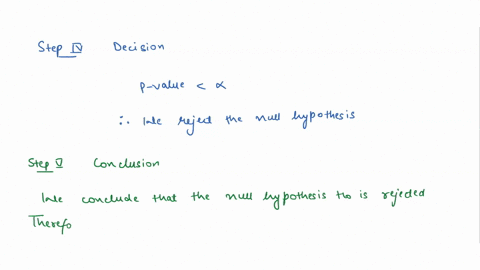 Step IV Decision
p-value < α
∴ We reject the null hypothesis
Step V Conclusion
We conclude that the null hypothesis H₀ is rejected
Therefo